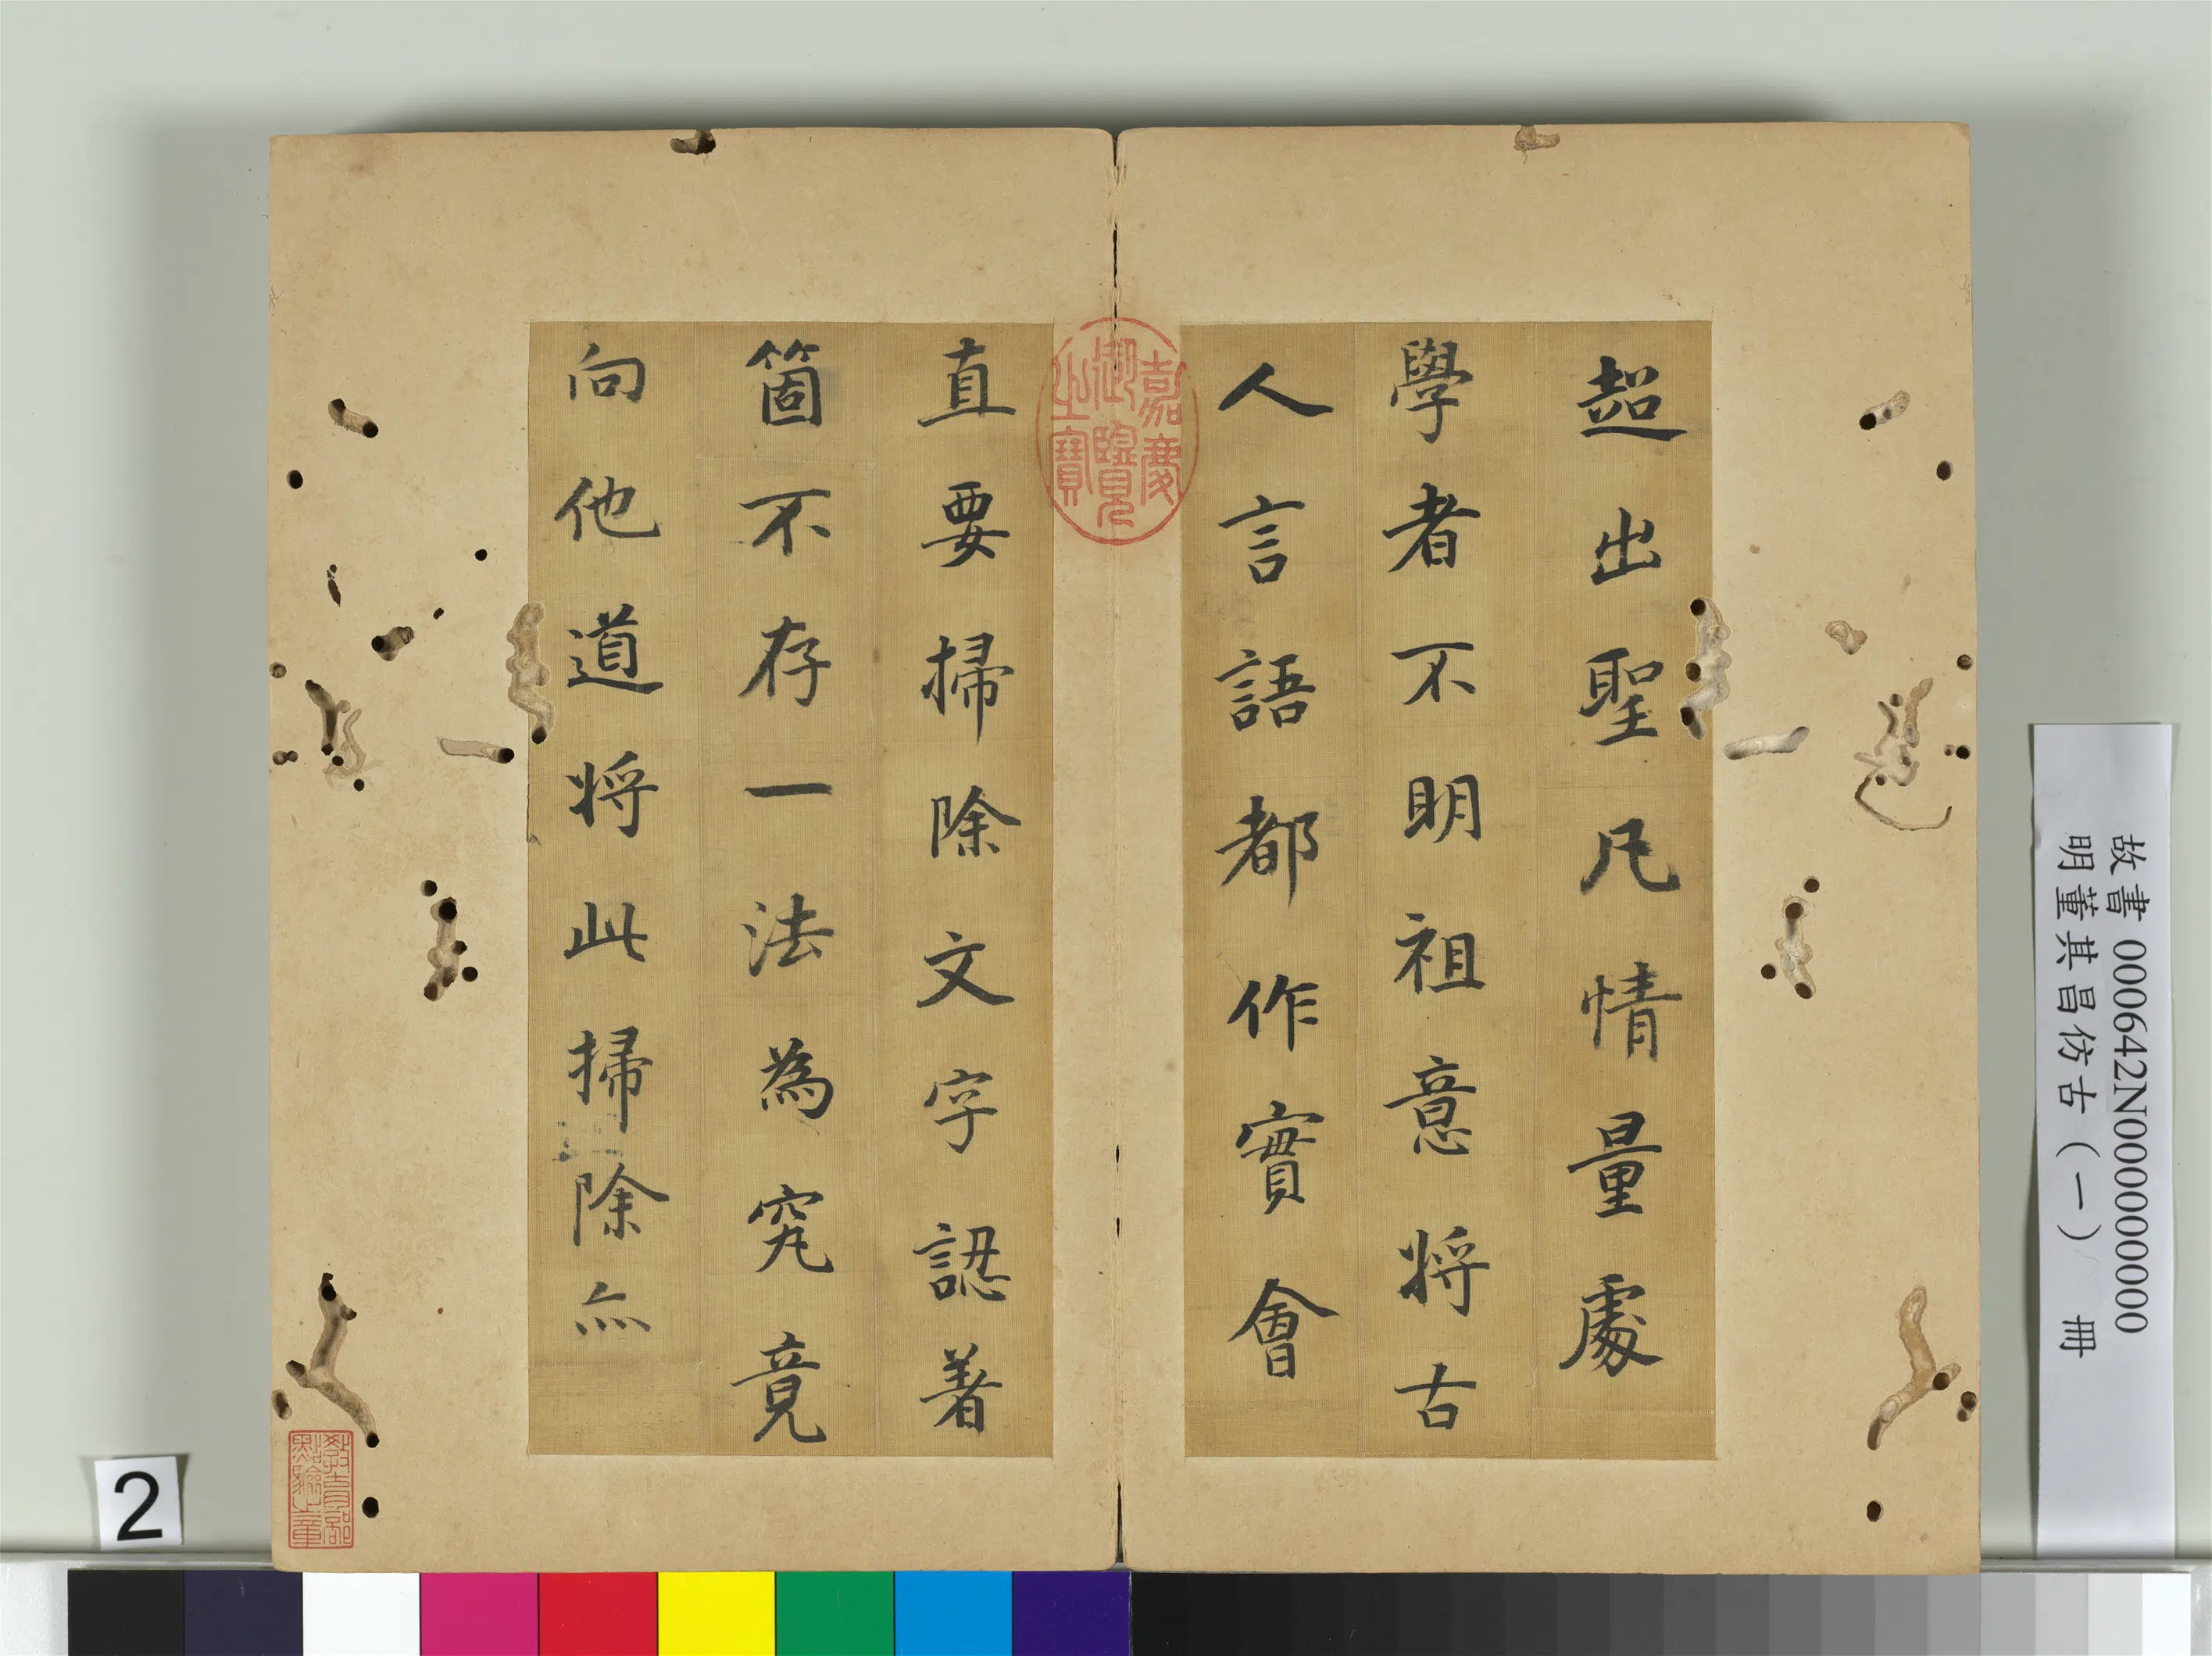 超出聖凡情量處
學者不明祖意將古
人言語都作實會
直要掃除文字認著
箇不存一法為究竟
向他道將此掃除亦
嘉慶
御覽
之寶
教育部
點驗之章
故書 000642N000000000
明董其昌仿古(一) 冊
2